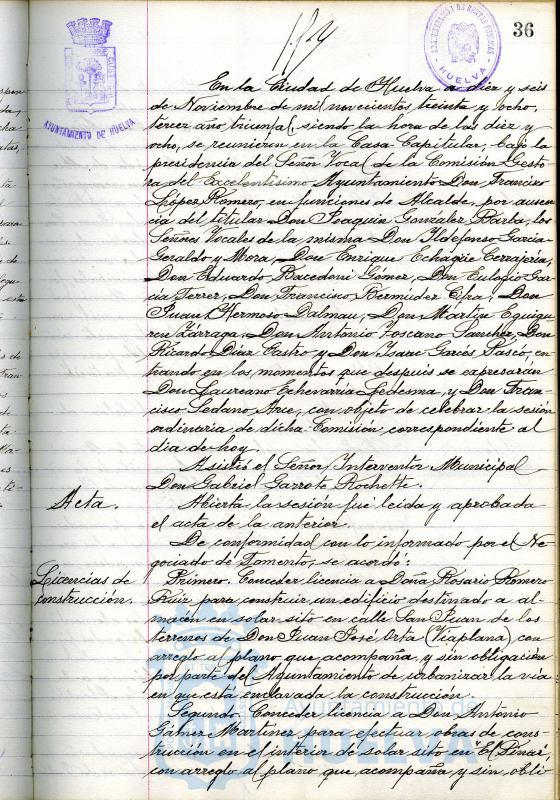 36
AYUNTAMIENTO DE HUELVA
HUELVA
En la Ciudad de Huelva a diez y seis
de Noviembre de mil novecientos treinta y ocho,
tercer año triunfal, siendo la hora de las diez y
ocho, se reunieron en la Casa Capitular, bajo la
presidencia del Señor Vocal de la Comisión Gesto-
ra del Excelentísimo Ayuntamiento Don Francisco
López Romero, en funciones de Alcalde, por ausen-
cia del titular Don Joaquín González Barba, los
Señores Vocales de la misma Don Ildefonso García-
Geraldo y Mora, Don Enrique Echagüe Cerrajería,
Don Eduardo Bacedoni Gómez, Don Eulogio Gar-
cía Ferrer, Don Francisco Bermudez Cfra, Don
Juan Hermoso Dalmau, Don Martín Equigu-
ren Zárraga, Don Antonio Toscano Sanchez, Don
Ricardo Díaz Castro y Don Isaac Garcés Pascó, en-
trando en los momentos que después se expresarán
Don Laureano Echevarría Ledesma, y Don Fran-
cisco Sedano Arce, con objeto de celebrar la sesión
ordinaria de dicha Comisión correspondiente al
día de hoy.
Asistió el Señor Interventor Municipal
Don Gabriel Garrote Rochette.
Acta.
Abierta la sesión fué leída y aprobada
el acta de la anterior.
De conformidad con lo informado por el Ne-
gociado de Fomento, se acordó:
Licencias de
construcción.
Primero. Conceder licencia a Doña Rosario Romero
Ruiz para construir un edificio destinado a al-
macén en solar sito en calle San Juan de los
terrenos de Don Juan José Orta (Viaplana) con
arreglo al plano que acompaña, y sin obligación
por parte del Ayuntamiento de urbanizar la vía
en que está enclavada la construcción.
Segundo. Conceder licencia a Don Antonio
Gálvez Martínez para efectuar obras de cons-
trucción en el interior de solar sito en "El Pinar",
con arreglo al plano que acompaña y sin obli-
Ayuntamiento de
HUELVA